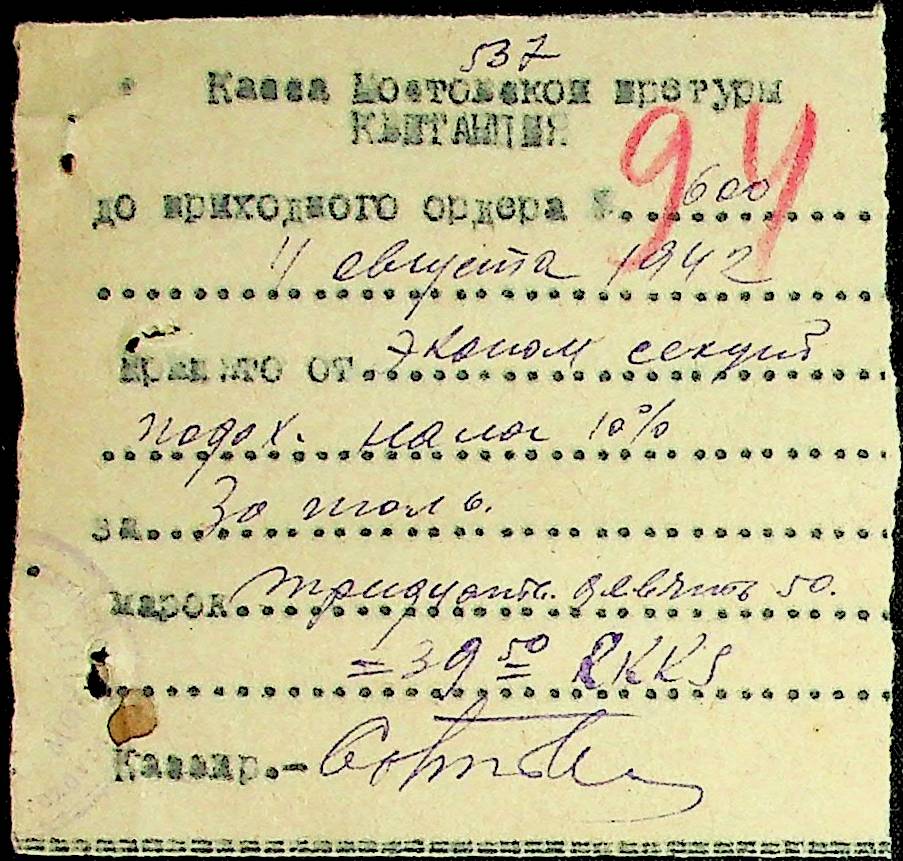 537
Касса Мостовской претуры
КВИТАНЦИЯ
94
до приходного ордера №. 600
11 августа 1942
принято от. эконом секции
подох. налог 10%
за. За июль.
марок. тридцать. девять 50.
= 39 50 RKKS
Кассир.-